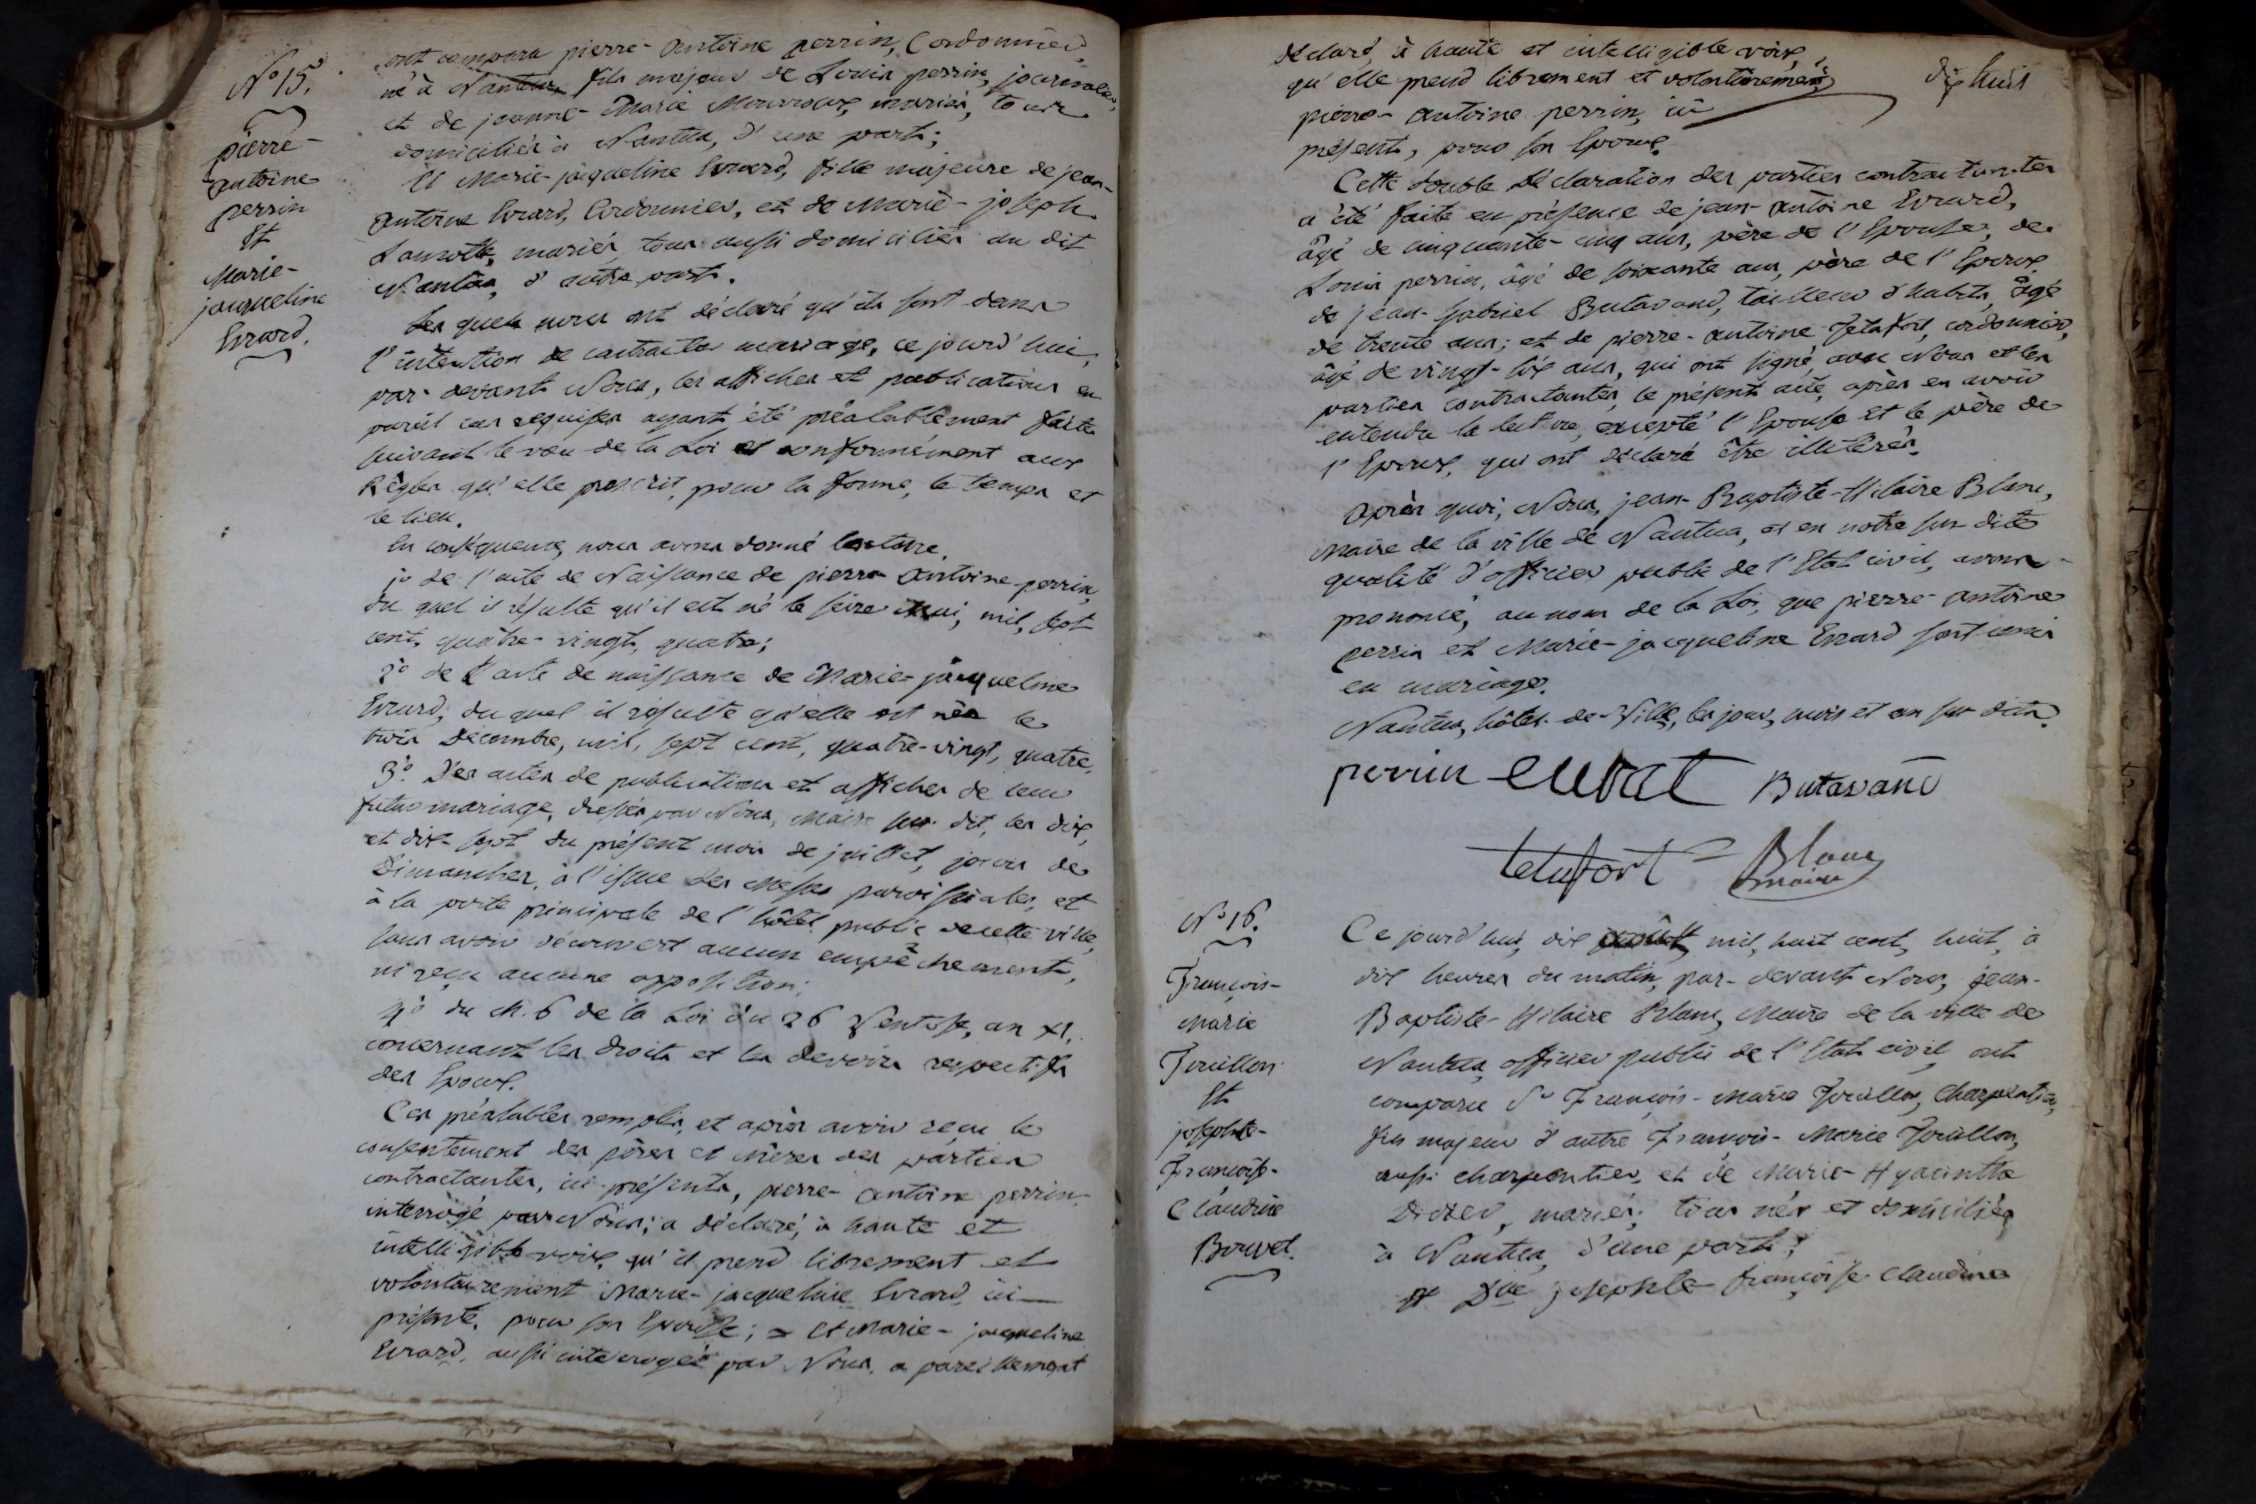 N.° 15.
pierre-
antoine
perrin
Et
Marie-
jacqueline
Evrard.
ont comparu pierre-antoine perrin, Cordonnier,
né à Nantua, fils majeur de Louis perrin, journalier,
et de jeanne-Marie mariés, tous
domiciliés à Nantua, d'une part;
Et Marie-jacqueline Evrard, fille majeure de jean-
antoine Evrard, Cordonnier, et de Marie-joseph
mariés, tous aussi domiciliés au dit
Nantua, d'autre part.
Les quels nous ont déclaré qu'ils sont dans
l'intention de contracter mariage, ce jourd'hui,
par-devant Nous, les affiches et publications en
pareil cas requises ayant été préalablement faites
suivant le vœu de la Loi et conformément aux
Règles qu'elle prescrit, pour la forme, le temps et
le lieu.
En conséquence, nous avons donné lecture.
1.° de l'acte de Naissance de pierre antoine perrin,
du quel il résulte qu'il est né le seize mai, mil, sept
cent, quatre-vingt, quatre;
2.° de l'acte de naissance de Marie-jacqueline
Evrard, du quel il résulte qu'elle est née le
trois Decembre, mil, sept cent, quatre-vingt, quatre.
3.° Des actes de publications et affiches de leur
futur mariage, dressés par Nous, Maire sus-dit, les dix,
et dix-sept du présent mois de juillet, jours de
Dimanches, à l'issue des Messes paroissiales, et
à la porte principale de l'hôtel public de cette ville,
sans avoir découvert aucun empêchement,
ni reçu aucune opposition;
4.° du ch. 6 de la Loi du 26 Ventose, an XI,
concernant les droits et les devoirs respectifs
des Epoux.
Ces préalables remplis, et après avoir reçu le
consentement des pères et Mères des parties
contractantes, ici présents, pierre-antoine perrin,
interrogé par Nous, a déclaré, à haute et
intelligible voix, qu'il prend librement et
volontairement Marie-jacqueline Evrard, ici
présente, pour son Epouse; Et Marie-jacqueline
Evrard, aussi interrogée par Nous, a pareillement
dix huit
déclaré, à haute et intelligible voix,
qu'elle prend librement et volontairement
pierre-antoine perrin, ici
présent, pour son Epoux.
Cette double déclaration des parties contractantes
a été faite en présence de jean-antoine Evrard,
âgé de cinquante-cinq ans, père de l'Epouse, de
Louis perrin, âgé de soixante ans, père de l'Epoux,
de jean-gabriel Butavand, tailleur d'habits, âgé
de trente ans; et de pierre-antoine Jetafort, cordonnier,
âgé de vingt-six ans, qui ont signé avec Nous et les
parties contractantes, le présent acte, après en avoir
entendu la lecture, excepté l'Epouse et le père de
l'Epoux, qui ont déclaré être illitérés.
Après quoi, Nous, jean-Baptiste-Hilaire Blanc,
Maire de la ville de Nantua, et en notre sus-dite
qualité d'officier public de l'Etat civil, avons
prononcé, au nom de la Loi, que pierre-antoine
perrin et Marie-jacqueline Evrard sont unis
en mariage.
Nantua, hôtel-de-Ville, les jour, mois et an sus-dits.
perrin Butavand
Blanc
maire
N.° 16.
François-
Marie
Jouillon
Et
josephte-
Françoise-
Claudine
Bouvet.
Ce jourd'hui, dix août, mil, huit cent, huit, à
dix heures du matin, par-devant Nous, jean-
Baptiste-Hilaire Blanc, Maire de la ville de
Nantua, officier public de l'Etat civil, ont
comparu S.r François-Marie Jouillon, Charpentier,
fils majeur d'autre François-Marie Jouillon,
aussi charpentier, et de Marie-Hyacinthe
Didier, mariés; tous nés et domiciliés
à Nantua, d'une part;
Et D.lle josephte françoise Claudine